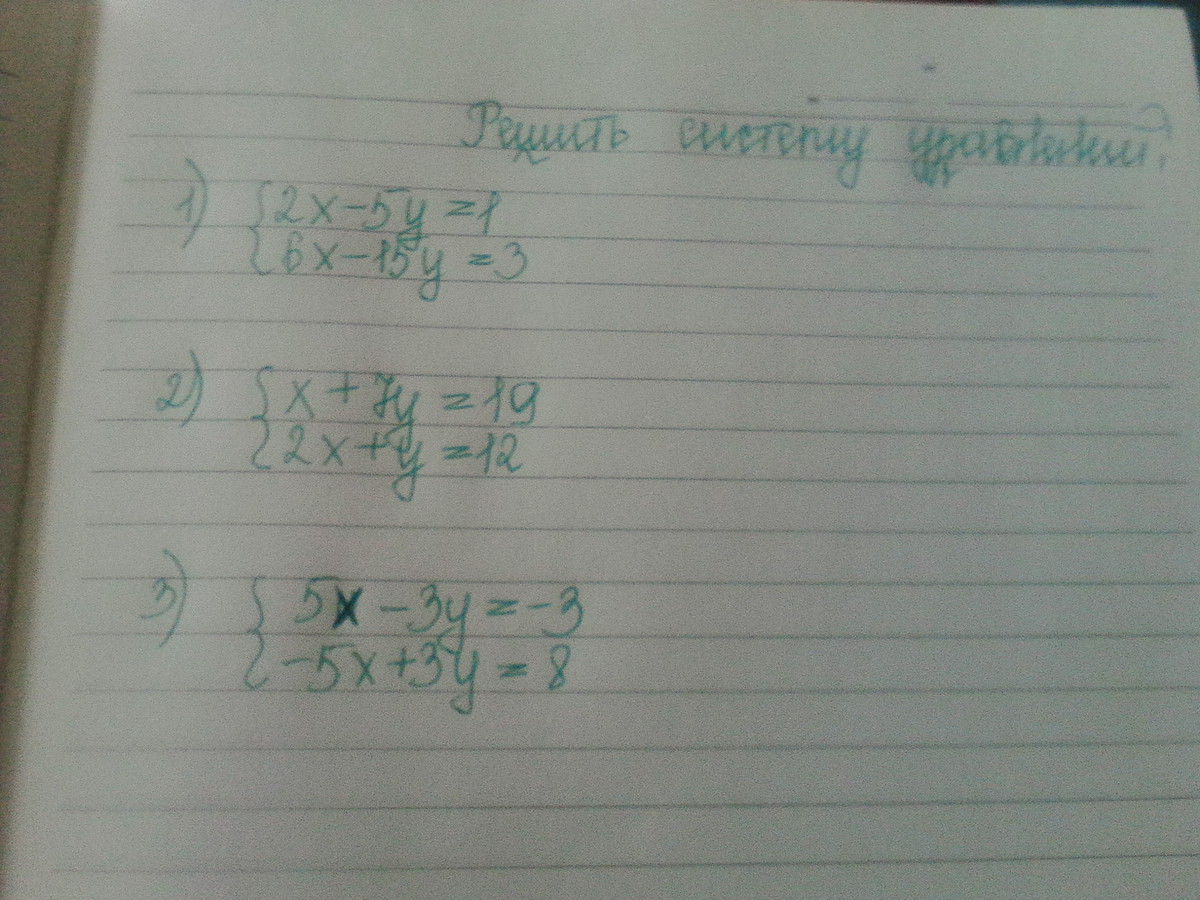 Решить систему уравнений.
1) {2x-5y=1
{6x-15y=3
2) {x+7y=19
{2x+y=12
3) {5x-3y=-3
{-5x+3y=8